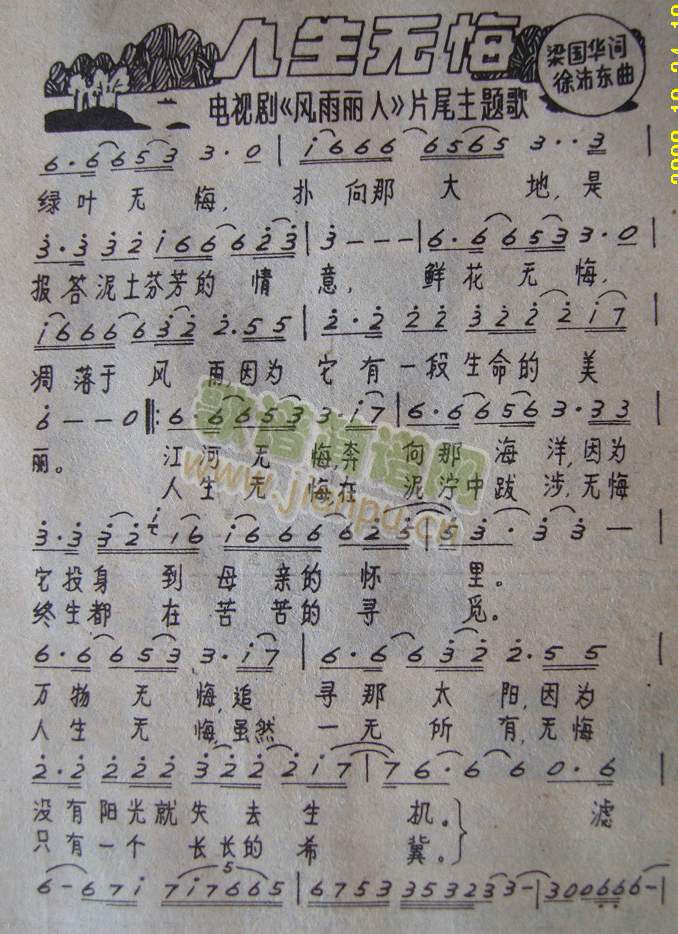 人生无悔
梁国华词
徐沛东曲
电视剧《风雨丽人》片尾主题歌
6·6 6 5 3 3·0 | i 6 6 6 6 5 6 5 3··3 |
绿叶无悔，扑向那大地，是
3·3 3 2 i 6 6 6 2 3 | 3 — — — | 6·6 6 5 3 3·0 |
报答泥土芬芳的情意，鲜花无悔，
i 6 6 6 6 3 2 2·5 5 | 2·2 2 2 3 2 2 2 i 7 |
凋落于风雨因为它有一段生命的美
6 — — 0 ‖: 6·6 6 5 3 3·i 7 | 6·6 6 5 6 3·3 3 |
丽。江河无悔，奔向那海洋，因为
人生无悔在泥泞中跋涉，无悔
3·3 3 2 i 6 i 6 6 6 6 2 5 | 5 3· 3 3 — |
它投身到母亲的怀里。
终生都在苦苦的寻觅。
6·6 6 5 3 3·i 7 | 6·6 6 3 2 2·5 5 |
万物无悔，追寻那太阳，因为
人生无悔，虽然一无所有，无悔
2·2 2 2 2 3 2 2 2 i 7 | 7 6·6 6 0·6 |
没有阳光就失去生机。滤
只有一个长长的希冀。
6 - 6 7 i 7 i 7 6 6 5 | 6 7 5 3 3 5 3 2 3 3 - | 3 0 0 6 6 6 - |
歌谱简谱网
www.jianpu.cn